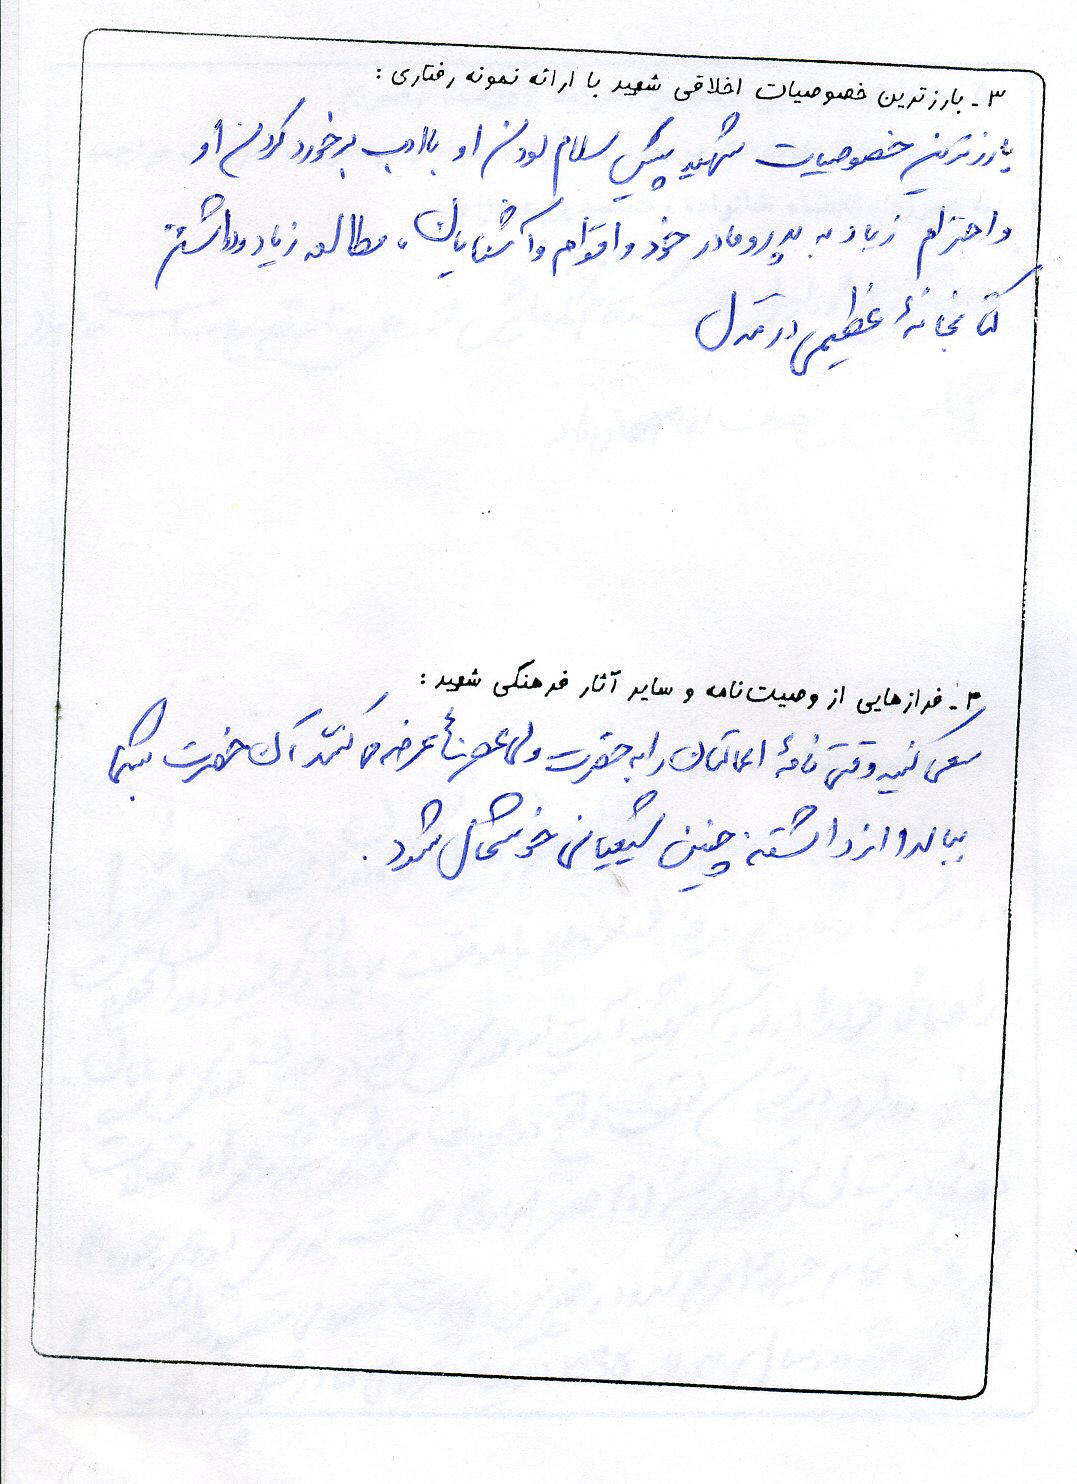 ۳- بارزترین خصوصیات اخلاقی شهید با ارائه نمونه رفتاری :
بارزترین خصوصیات شهید پیش سلام بودن او باادب برخورد کردن او
و احترام زیاد به پدر و مادر خود و اقوام و آشنایان، مطالعه زیاد و داشتن
کتابخانهٔ عظیمی در منزل
۴- فرازهایی از وصیت‌نامه و سایر آثار فرهنگی شهید :
سعی کنید وقتی نامهٔ اعمالتان را به حضرت ولی عصر عرضه می کنند آن حضرت بشما
ببالد و از داشتن چنین شیعیانی خوشحال شود .